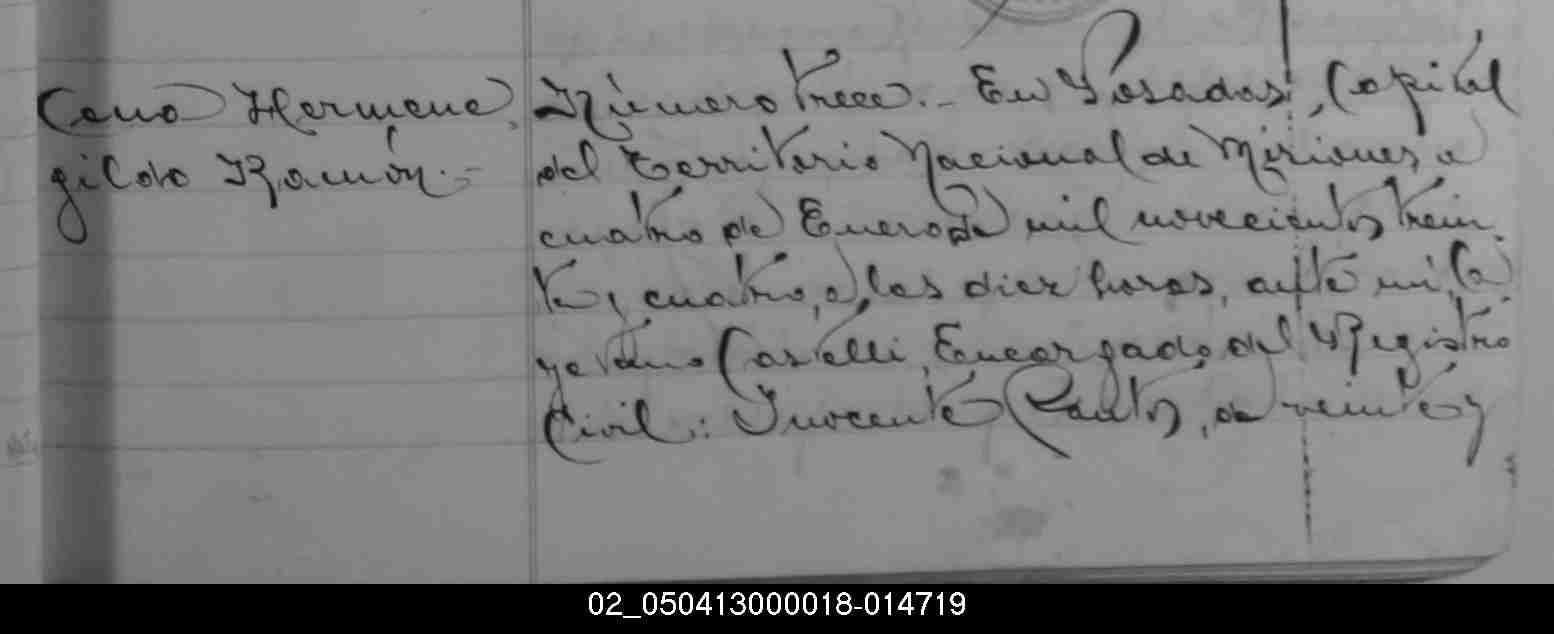 Cano Hermene,
gildo Ramón.-
Número trece.- En Posadas, Capital
del Territorio Nacional de Misiones, a
cuatro de Enero de mil novecientos trein
ta y cuatro, a las diez horas, ante mi, Ca
yetano Castelli, Encargado del Registro
Civil: Inocente, de veinte y
02_050413000018-014719